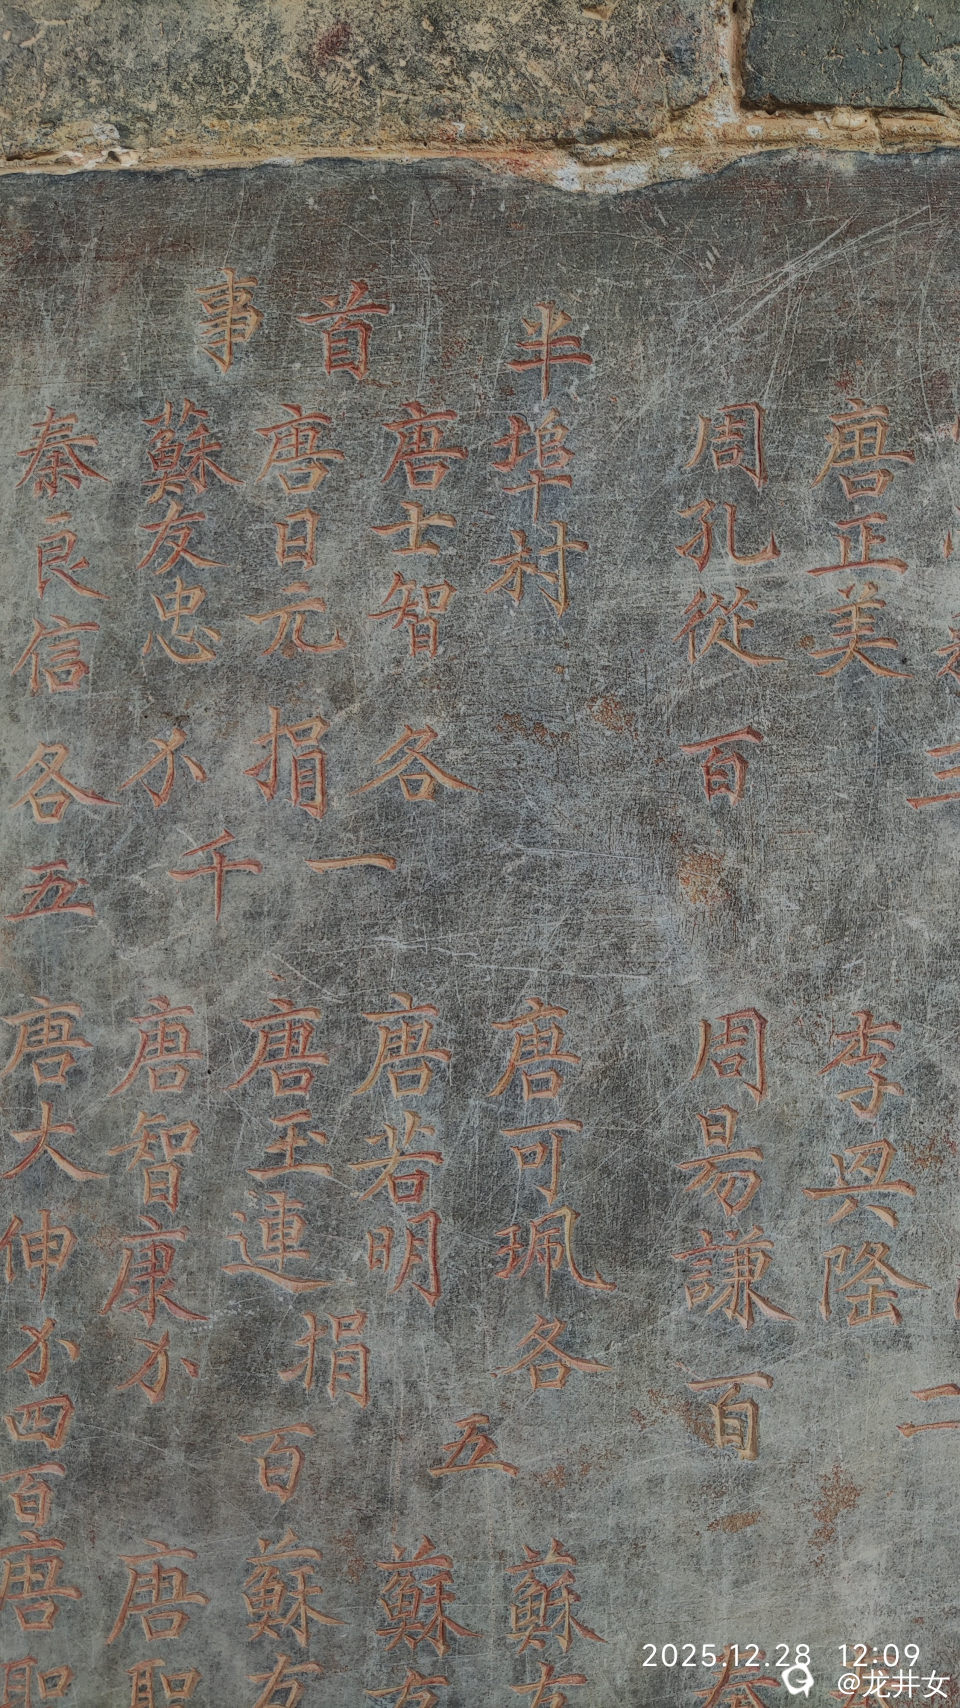 唐正美 李興隆
周孔從 百 周易謙 百
半埠村 唐可珮 各 蘇
唐士智 各 唐若明 五 蘇
首 唐日元 捐 一 唐玉連 捐 百 蘇
事 蘇友忠 千 唐智康 唐
秦良信 各 五 唐大伸 四百 唐
2025.12.28 12:09
@龙井女